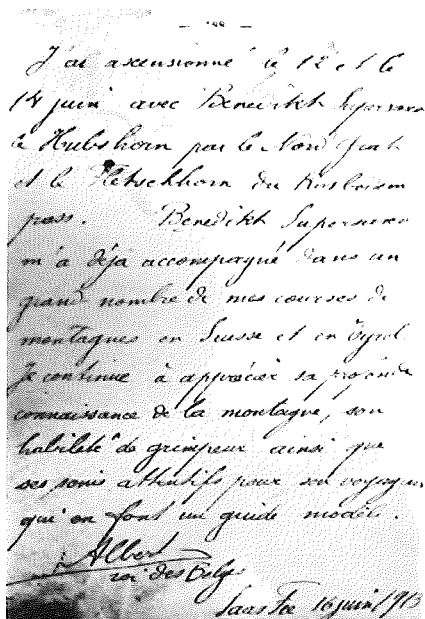 J'ai ascensionné le 12 et le
14 juin avec Benedikt Supersaxo
le Hubshorn par le Nord Grat
et le Fletschhorn du Rosboden
pass. Benedikt Supersaxo
m'a déja accompagné dans un
grand nombre de mes courses de
montagnes en Suisse et en Tyrol.
Je continue à apprécier sa profonde
connaissance de la montagne, son
habileté de grimpeur ainsi que
ses soins attentifs pour son voyageur
qui en font un guide modèle.
Albert
roi des Belges
Saas Fee 16 juin 1913